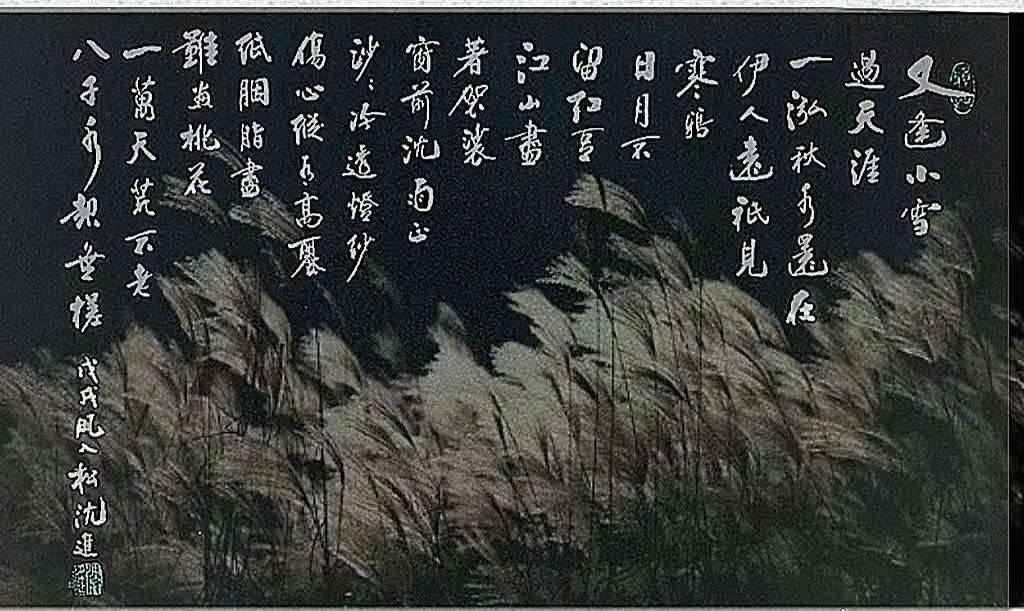 又逢小雪
過天涯
一泓秋水還在
伊人遠祇見
寒鴉
日月不
留紅豆
江山盡
著袈裟
窗前沈雨正
沙沙冷透燈紗
傷心縱有高麗
紙胭脂盡
難畫桃花
一萬天荒不老
八千水無槎
戊戌風入松沈進